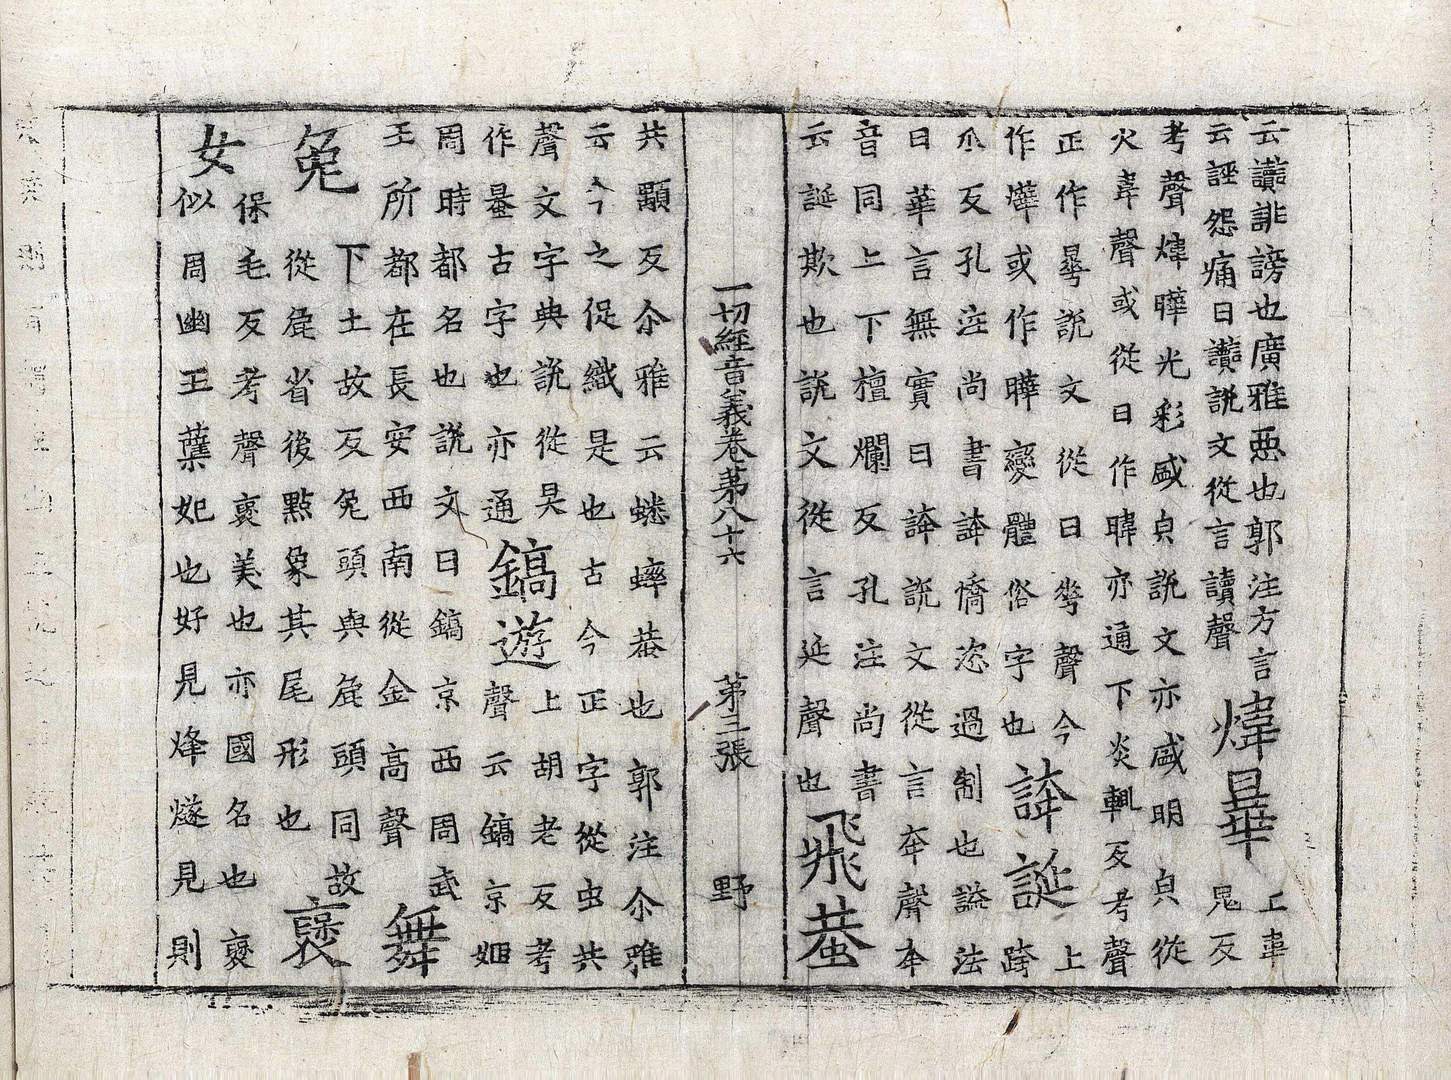 云讟誹謗也廣雅惡也郭注方言
云誣怨痛曰讟説文從言讀聲
煒曅
上韋
鬼反
考聲煒曄光彩盛皃説文亦盛明皃從
火韋聲或從日作暐亦通下炎輒反考聲
正作曅説文從日𠌶聲今
作爗或作曄變體俗字也
誇誕
上
跨
爪反孔注尚書誇憍恣過制也謚法
曰華言無實曰誇説文從言夸聲夸
音同上下檀爛反孔注尚書
云誕欺也説文從言延聲也
飛蛬
一切經音義卷苐八十六 第三張 野
共顒反尒雅云蟋蟀蛬也郭注尒雅
云今之促織是也古今正字從虫共
聲文字典説從昊
作蛬古字也亦通
鎬遊
上胡老反考
聲云鎬京姬
周時都名也説文曰鎬京西周武
王所都在長安西南從金高聲
舞
兔
下土故反兔頭與㲋頭同故
從㲋省後點象其尾形也
褒
女
保毛反考聲褒美也亦國名也褒
似周幽王孽妃也好見烽燧見則